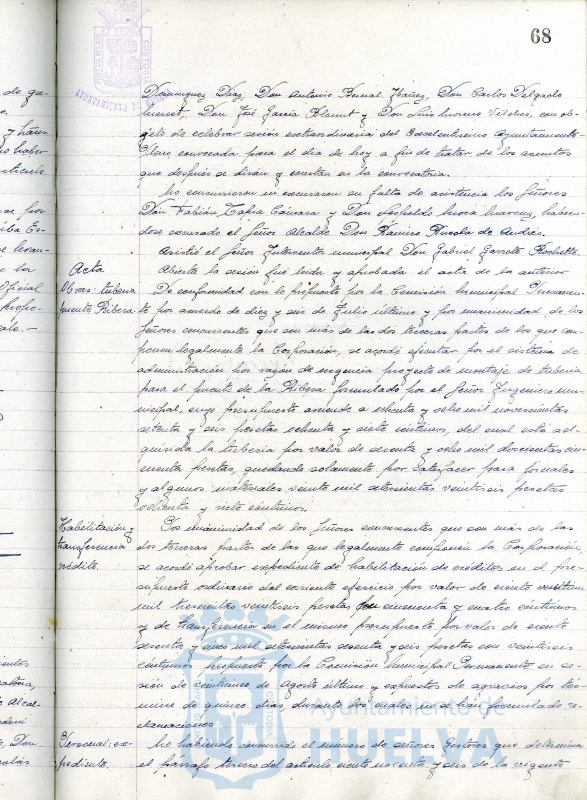 68
AYUNTAMIENTO DE
Dominguez Diaz, Don Antonio Bernal Ibañez, Don Carlos Delgado
Don José Garcia y Don Luis Moreno Vilches, con ob-
jeto de celebrar sesión extraordinaria del Excelentísimo Ayuntamiento
Pleno, convocada para el dia de hoy a fin de tratar de los asuntos
que después se dirán y constan en la convocatoria.
No concurrieron ni excusaron su falta de asistencia los Señores
Don Fabián Tapia Cámara y Don Leopoldo habien-
dose excusado el Señor Alcalde Don Ramiro
Asistió el Señor Interventor municipal Don Gabriel Garrote
Acta
Abierta la sesión fué leida y aprobada el acta de la anterior
Obras: tuberia
De conformidad con lo propuesto por la Comisión Municipal Permanen-
puente Ribera.
te por acuerdo de diez y seis de Julio último y por unanimidad de los
Señores concurrentes que son más de las dos terceras partes de los que com-
ponen legalmente la Corporación, se acordó ejecutar por el sistema de
administración por razón de urgencia proyecto de montaje de tuberia
para el puente de la Ribera formulado por el Señor Ingeniero mu-
nicipal, cuyo presupuesto asciende a ochenta y ocho mil novecientas
setenta y seis pesetas ochenta y siete céntimos, del cual está ad-
quirida la tuberia por valor de sesenta y ocho mil doscientas cin-
cuenta pesetas, quedando solamente por satisfacer para jornales
y algunos materiales veinte mil setecientas veintiseis pesetas
ochenta y siete céntimos.
Habilitación y
Por unanimidad de los Señores concurrentes que son más de las
transferencia
dos terceras partes de los que legalmente componen la Corporación,
crédito.
se acordó aprobar expediente de habilitación de créditos en el pre-
supuesto ordinario del corriente ejercicio por valor de ciento
mil trescientas veintiseis pesetas, con cincuenta y cuatro céntimos
y de transferencia en el mismo presupuesto por valor de ciento
sesenta y cinco mil setecientas sesenta y seis pesetas con veintiseis
céntimos, propuesto por la Comisión Municipal Permanente en se-
sión de veinticinco de Agosto último y expuestos de agravios por tér-
mino de quince dias, durante los cuales no se han formulado re-
clamaciones
Personal: ex-
No habiendo concurrido el número de señores Gestores que determina
pediente.
el párrafo tercero del artículo ciento noventa y seis de la vigente
Ayuntamiento de
HUELVA